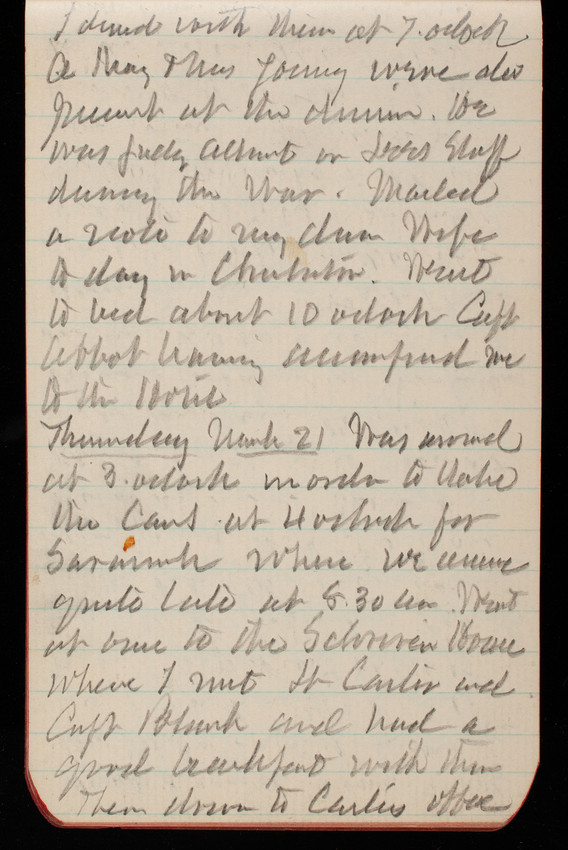 I dined with them at 7. oclock
A May & Mrs Young were also
present at the dinner. He
was Judg on Lees Staff
during the War. Mailed
a note to my dear Wife
to day in Charleston. Went
to bed about 10 oclock Capt
Abbot having accompnied me
to the Hotel
Thursday March 21 Was aroused
at 3. oclock in order to take
the Cars at 4 oclock for
Savannah where we arrive
quite late at 8.30 am. Went
at once to the Schriven House
where I met Lt Carter and
Capt and had a
good breakfast with them
Then down to Carters office